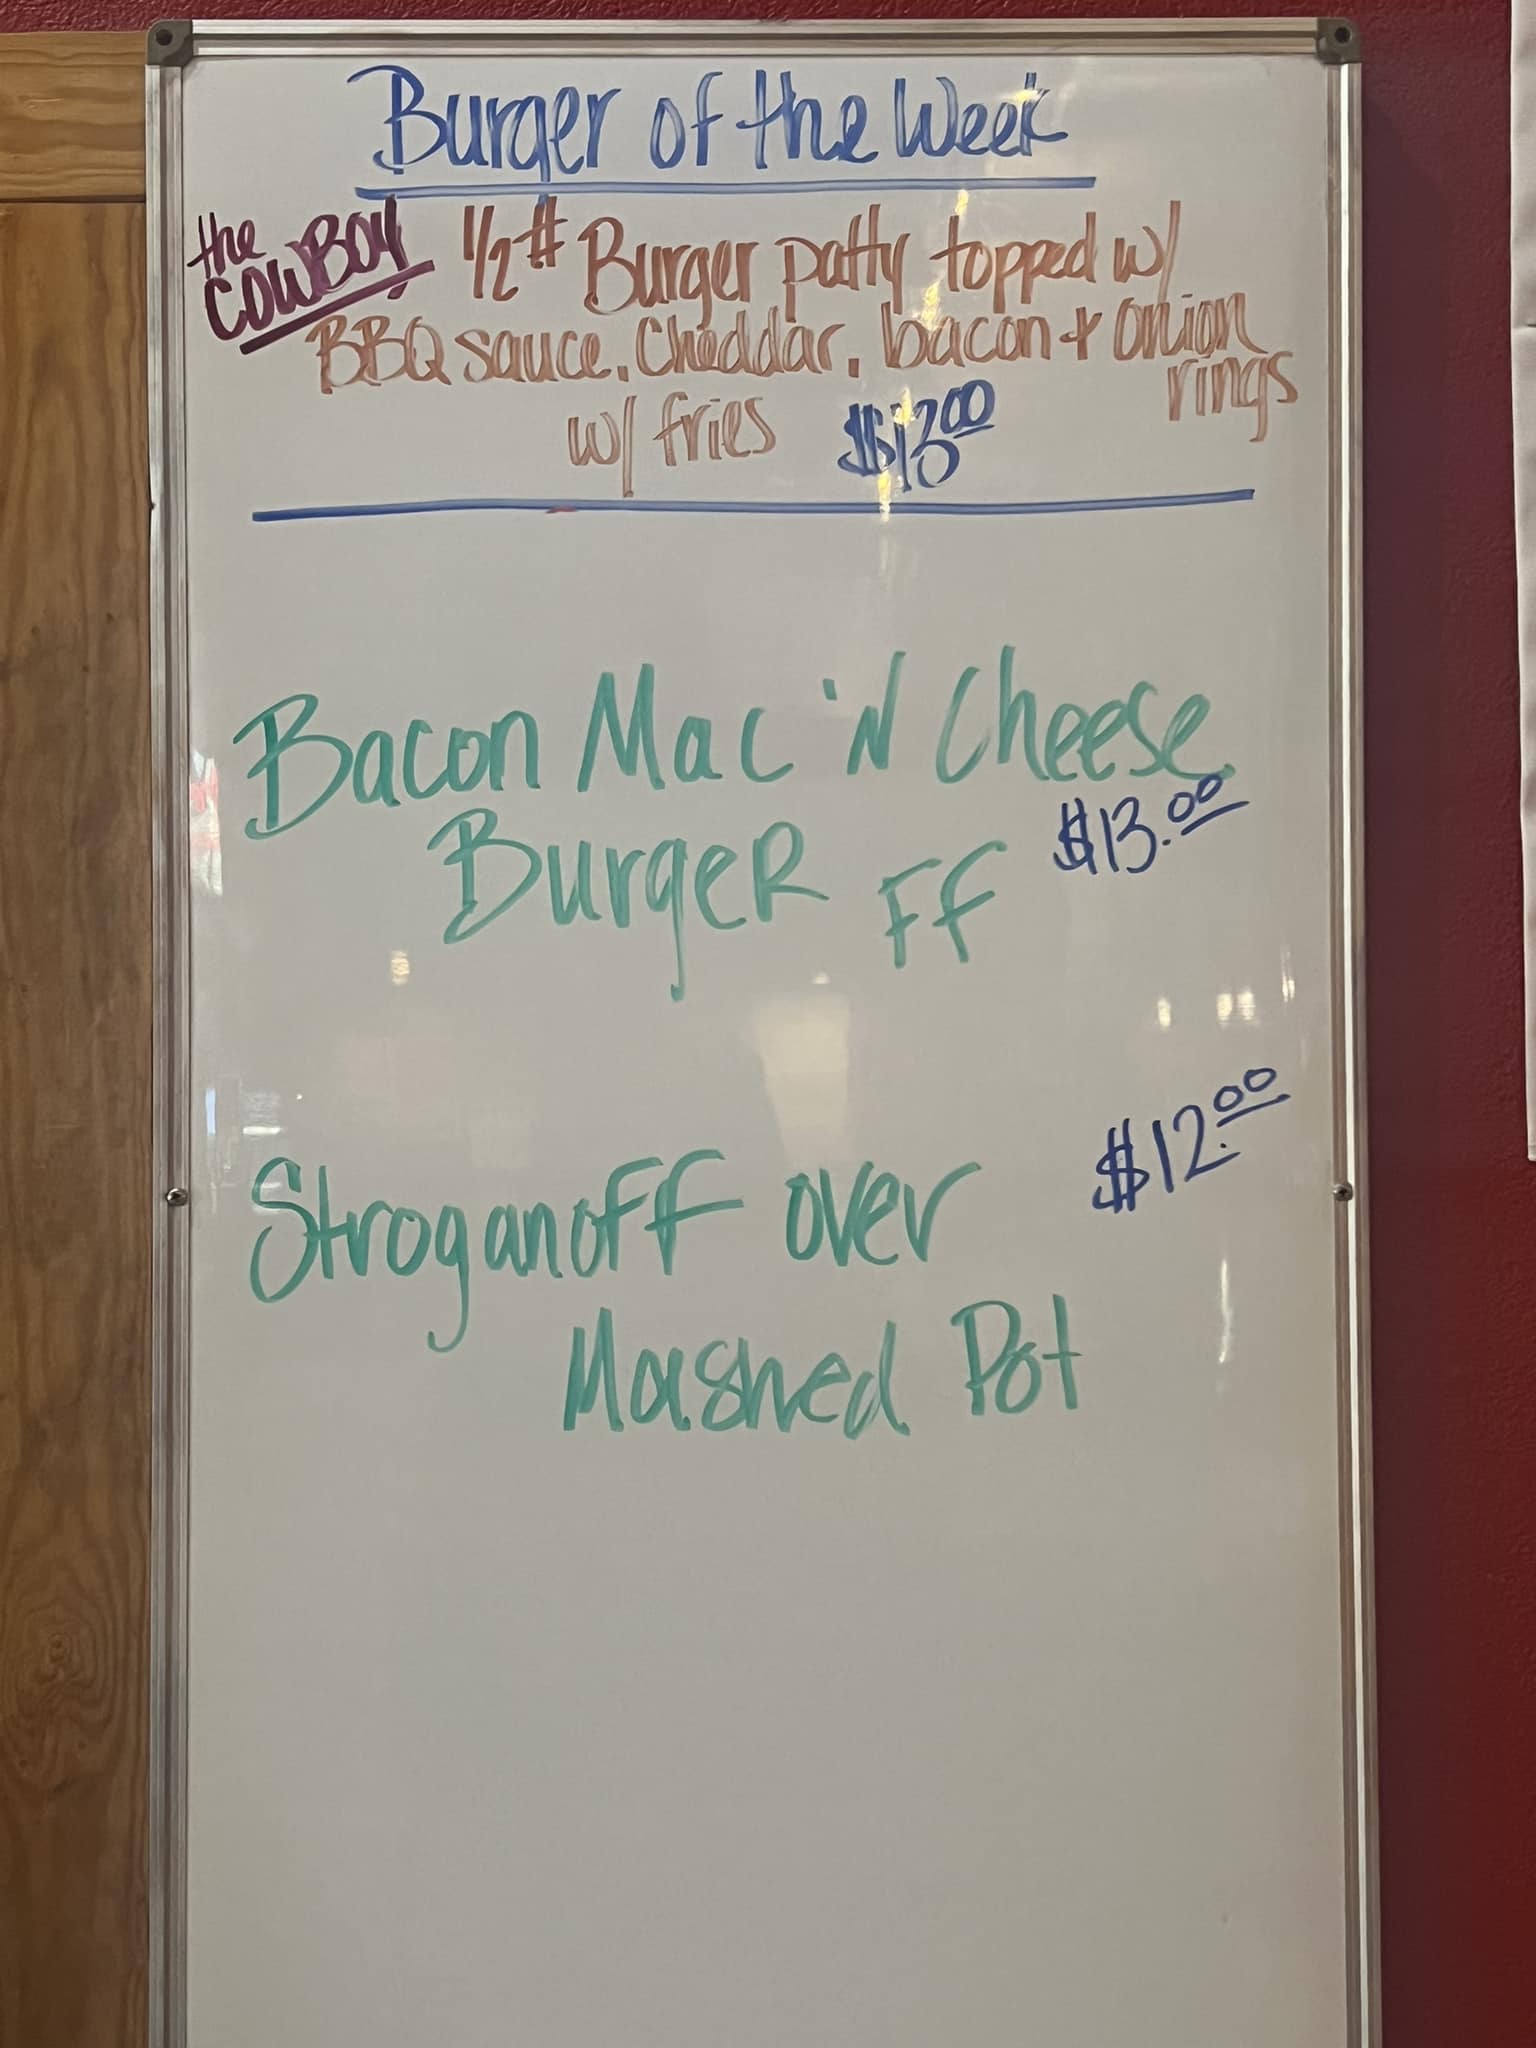 Burger of the Week
the COWBOY 1/2# Burger patty topped w/
BBQ sauce, Cheddar, bacon + onion
rings
w/ fries $13.00
Bacon Mac 'N Cheese
Burger FF $13.00
$12.00
Stroganoff over
Mashed Pot